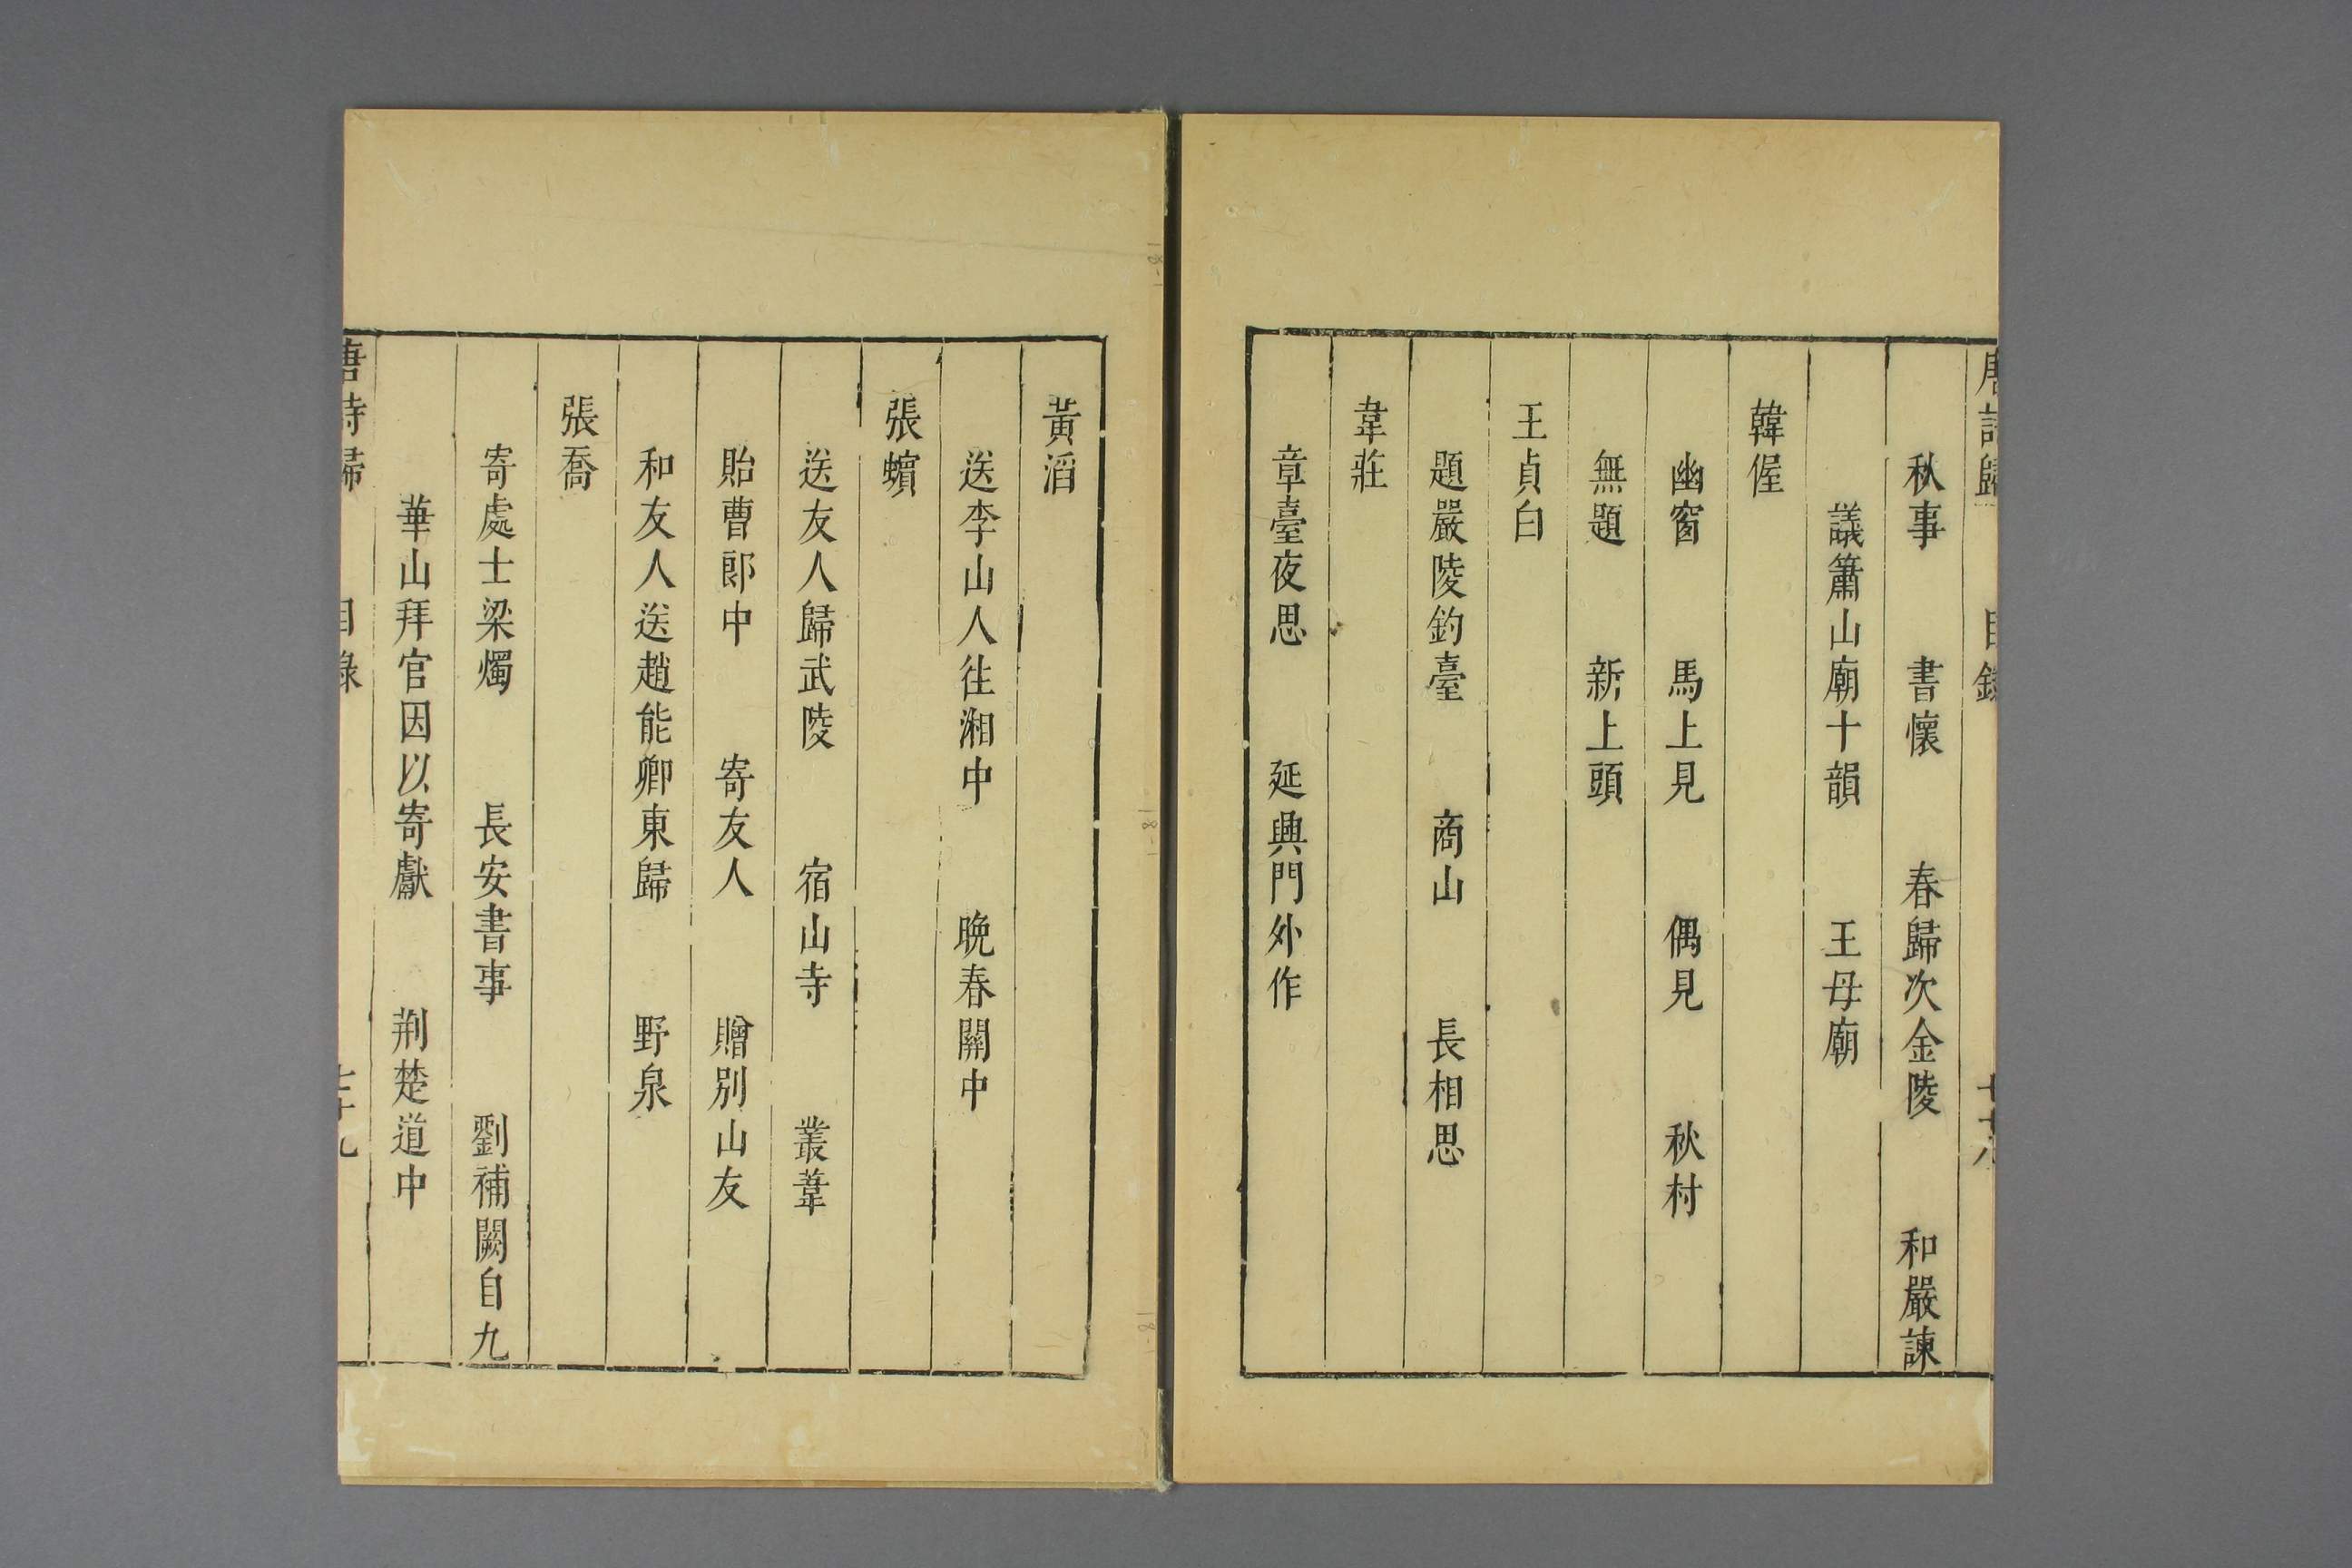 唐詩歸 目錄 七十八
秋事 書懷 春歸次金陵 和嚴諫
議蕭山廟十韻 王母廟
韓偓
幽窗 馬上見 偶見 秋村
無題 新上頭
王貞白
題嚴陵釣臺 商山 長相思
韋莊
章臺夜思 延興門外作
黃滔
送李山人往湘中 晚春關中
張蠙
送友人歸武陵 宿山寺 叢葦
貽曹郎中 寄友人 贈別山友
和友人送趙能卿東歸 野泉
張喬
寄處士梁燭 長安書事 劉補闕自九
華山拜官因以寄獻 荆楚道中
唐詩歸 目錄 七十九